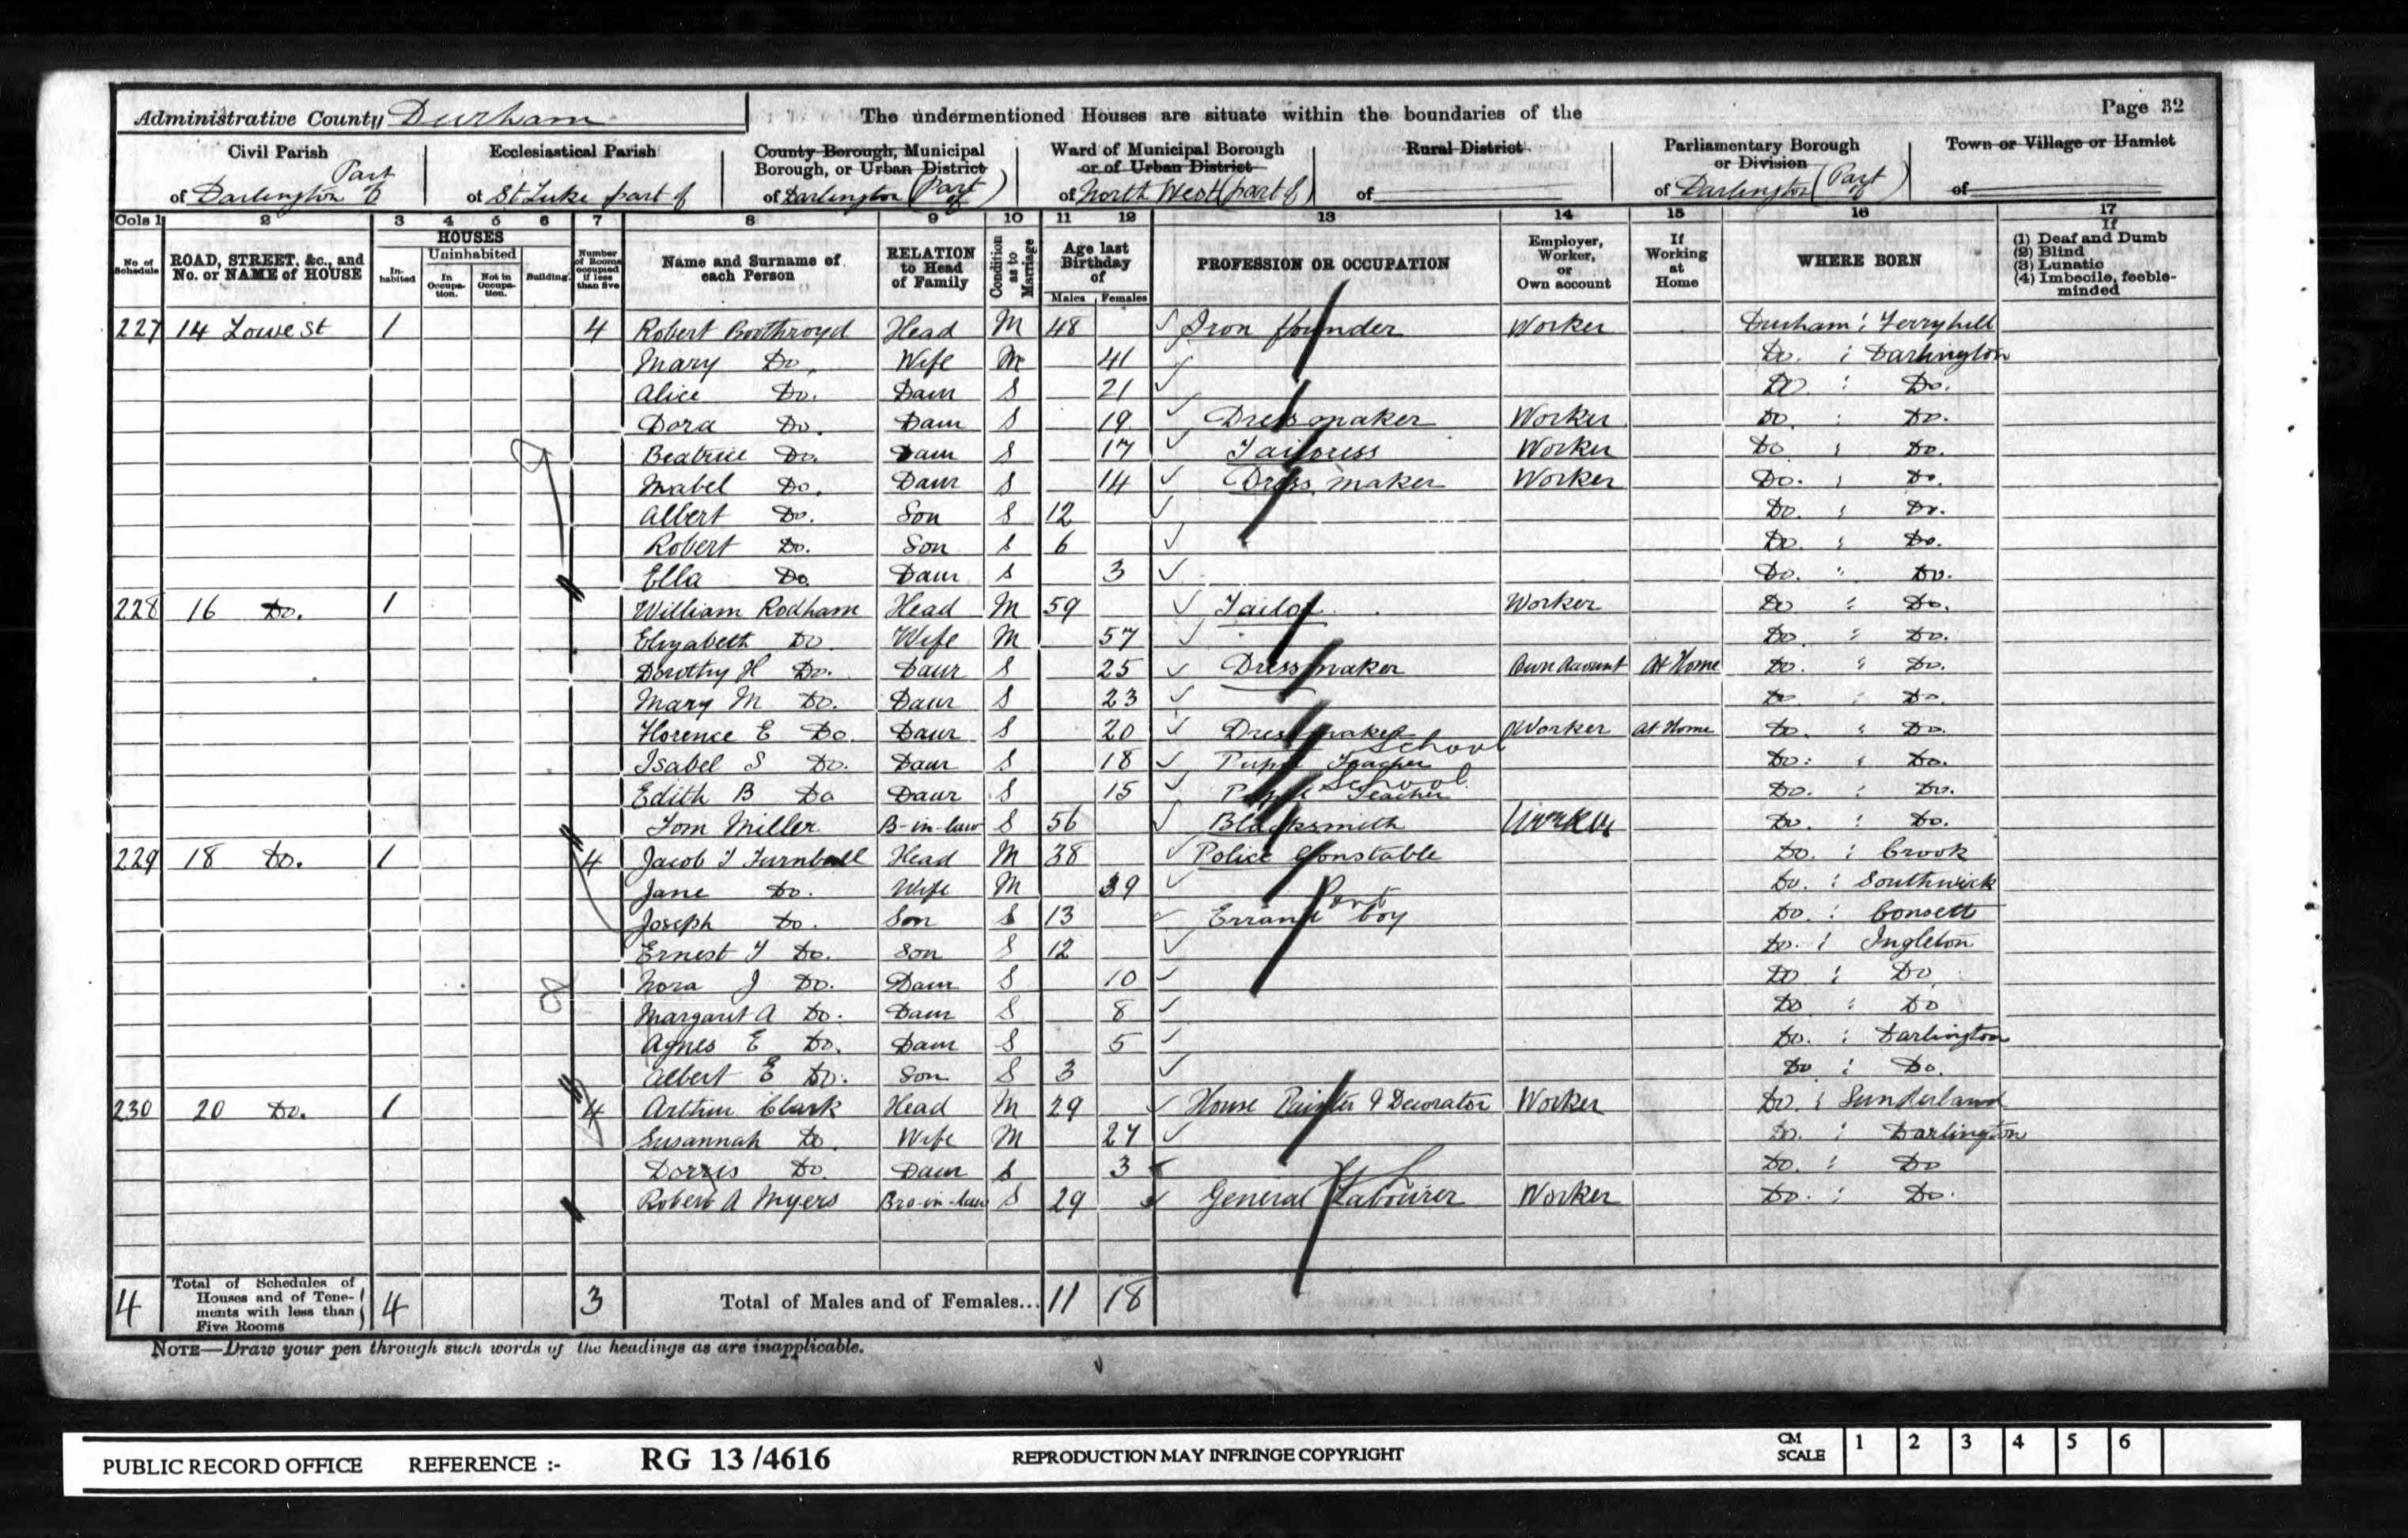 Administrative County Durham
The undermentioned Houses are situate within the boundaries of the
Page 32
Civil Parish of Darlington Part of
Ecclesiastical Parish of St Luke part of
County Borough, Municipal Borough, or Urban District of Darlington (Part of)
Ward of Municipal Borough or of Urban District of North West (part of)
Rural District of
Parliamentary Borough or Division of Darlington (Part of)
Town or Village or Hamlet of
Cols 1 2 3 4 5 6 7 8 9 10 11 12 13 14 15 16 17
No. of Schedule
ROAD, STREET, &c., and No. or NAME of HOUSE
HOUSES
In-habited
Uninhabited
In Occupa-tion.
Not in Occupa-tion.
Building.
Number of Rooms occupied if less than five
Name and Surname of each Person
RELATION to Head of Family
Condition as to Marriage
Age last Birthday of
Males Females
PROFESSION OR OCCUPATION
Employer, Worker, or Own account
If Working at Home
WHERE BORN
If
(1) Deaf and Dumb
(2) Blind
(3) Lunatic
(4) Imbecile, feeble-minded
227 14 Lowe St 1 4 Robert Boothroyd Head M 48 Iron founder Worker Durham : Ferryhill
Mary Do. Wife M 41 Do. : Darlington
Alice Do. Daur S 21 Do : Do.
Dora Do. Daur S 19 Dressmaker Worker Do. : Do.
Beatrice Do. Daur S 17 Tailoress Worker Do : Do.
Mabel Do. Daur S 14 Dress maker Worker Do. : Do.
Albert Do. Son S 12 Do. : Do.
Robert Do. Son S 6 Do. : Do.
Ella Do. Daur S 3 Do. : Do.
228 16 Do. 1 William Rodham Head M 59 Tailor Worker Do : Do.
Elizabeth Do Wife M 57 Do : Do.
Dorothy H Do. Daur S 25 Dressmaker Own Account At Home Do. : Do.
Mary M Do. Daur S 23 Do : Do.
Florence E Do. Daur S 20 Dressmaker Worker At Home Do. : Do.
Isabel S Do. Daur S 18 Pupil Teacher School Do. : Do.
Edith B Do Daur S 15 Pupil Teacher School Do. : Do.
Tom Miller B-in-law S 56 Blacksmith Worker Do. : Do.
229 18 Do. 1 4 Jacob T Turnbull Head M 38 Police Constable Do. : Crook
Jane Do. Wife M 39 Do. : Southwick
Joseph Do. Son S 13 Errand boy Do. : Consett
Ernest T Do. Son S 12 Do. : Ingleton
Nora J Do. Daur S 10 Do : Do
Margaret A Do. Daur S 8 Do : Do
Agnes E Do. Daur S 5 Do. : Darlington
Albert E Do. Son S 3 Do : Do.
230 20 Do. 1 4 Arthur Clark Head M 29 House Painter & Decorator Worker Do. : Sunderland
Susannah Do. Wife M 27 Do. : Darlington
Dorris Do. Daur S 3 Do. : Do
Robert A Myers Bro-in-law S 29 General Labourer Worker Do. : Do.
4 Total of Schedules of Houses and of Tene-ments with less than Five Rooms 4 3 Total of Males and of Females... 11 18
NOTE—Draw your pen through such words of the headings as are inapplicable.
PUBLIC RECORD OFFICE REFERENCE :- RG 13/4616 REPRODUCTION MAY INFRINGE COPYRIGHT CM SCALE 1 2 3 4 5 6